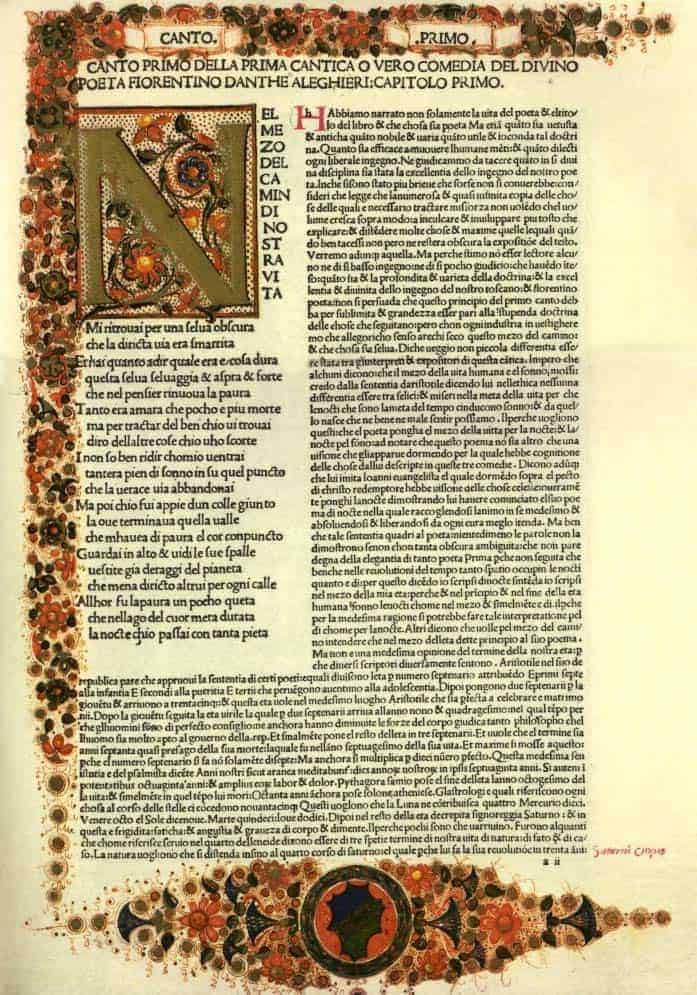 CANTO. PRIMO.
CANTO PRIMO DELLA PRIMA CANTICA O VERO COMEDIA DEL DIVINO
POETA FIORENTINO DANTHE ALEGHIERI: CAPITOLO PRIMO.
NEL
MEZO
DEL
CA
MIN
DI NO
ST
RA
VI
TA
Mi ritrouai per una selua obscura
che la diricta uia era smarrita
Et has quanto adir quale era e cosa dura
questa selua seluaggia & aspra & forte
che nel pensier rinuoua la paura
Tanto era amara che pocho e piu morte
ma per tractar del ben chio ui trouai
diro dellaltre cose chio uho scorte
I non so ben ridir chomio uentrai
tantera pien di sonno in su quel puncto
che la uerace uia abbandonai
Ma poi chio fui appie dun colle giunto
la oue terminaua quella ualle
che mhauea di paura el cor conpuncto
Guardai in alto & uidi le sue spalle
uestite gia deraggi del pianeta
che mena diricto altrui per ogni calle
Allhor fu lapaura un pocho queta
che nellago del cuor mera durata
la nocte chio passai con tanta pieta
HAbbiamo narrato non solamente la uita del poeta & eltito/
lo del libro & che chosa sia poeta Ma etiā quāto sia uetusta
& anticha quāto nobile & uaria quāto utile & ioconda tal doctri
na. Quanto sia efficace a muouere lhumane mēti: & quāto dilecti
ogni liberale ingegno. Ne giudicammo da tacere quāto in si diui
na disciplina sia stata la excellentia dello ingegno del nostro poe
ta. Inche si sono stato piu brieue che forse non si conuerebbe: con/
sideri che legge che lanumerosa & quasi infinita copia delle cho/
se delle quali e necessario tractare mi sforza non uolēdo chel uo/
lume cresca sopra modo: a inculcare & inuiluppare piu tosto che
explicare: & distēdere molte chose & maxime quelle lequali quā/
do ben tacessi non pero ne restera obscura la expositiōe del testo.
Verremo adunq̨ aquella. Ma perche stimo nō esser lectore alcu/
no ne di si basso ingegno: ne di si pocho giudicio: che hauēdo ite/
so: quāto sia & la profondita & uarieta della doctrina: & la excel
lentia & diuinita dello ingegno del nostro toscano: & fiorentino
poeta: non si persuada che questo principio del primo canto deb/
ba per sublimita & grandezza esser pari alla stupenda doctrina
delle chose che seguitano: pero chon ogni industria in uestighere
mo che allegoricho senso arechi seco questo mezo del camino:
& che chosa sia selua. Diche ueggio non piccola differentia esse/
re stata tra glinterpreti & expositori di questa cātica. Impero che
alchuni dicono: che il mezo della uita humana e el sonno, mossi:
credo dalla sententia daristotile dicendo lui nellethica nessunna
differentia essere tra felici: & miseri nella meta della uita per che
lenocti che sono lameta del tempo cinducono sonno: & da quel/
lo nasce che ne bene ne male sentir possiamo. Ilperche uogliono
questi: che el poeta pongha el mezo della uita per la nocte: & la/
nocte pel sōno: ad notare che questo poema nō sia altro che una
uisione che gliapparue dormendo per la quale hebbe cognitione
delle chose dallui descripte in queste tre comedie. Dicono adūq̨
che lui imita Ioanni euangelista el quale dormēdo sopra el pecto
di christo redemptore hebbe uisione delle chose celeste: o ueramē
te ponghi lanocte dimostrando lui hauere cominciato el suo poe
ma di nocte nella quale raccogliendosi lanimo in se medesimo &
absoluendosi & liberandosi da ogni cura meglo intenda. Ma ben
che tale sententia quadri al poeta: nientedimeno le parole non la
dimostrono senon chon tanta obscura ambiguita: che non pare
degna della elegantia di tanto poeta Prima perche non seguita che
benche nelle reuolutioni del tempo tanto spatio occupin le nocti
quanto e di: per questo dicēdo io scripsi dinocte sintēda io scripsi
nel mezo della mia eta: perche & nel pricipio & nel fine della eta
humana sonno lenocti chome nel mezo & similmēte e di. ilpche
per la medesima ragione si potrebbe fare tale interpretatione pel
di chome per lanocte. Altri dicono che uolle pel mezo del cami/
no intendere che nel mezo delleta dette principio al suo poema.
Ma non e una medesima opinione del termine della nostra eta: p
che diuersi scriptori diuersamente sentono. Aristotile nel suo de
republica pare che appruoui la sententia di certi poeti: equali diuisono leta p numero septenario attribuēdo Eprimi septe
alla infantia E secondi alla pueritia E tertii che peruēgono auentuno alla adolescentia. Dipoi pongono due septenarii p la
giouētu & arriuono a trentacinq̨: & questa eta uuole nel medesimo luogho Aristotile che sia pfecta a celebrare e matrimo
nii. Dopo la giouētu seguita la eta uirile la quale p due septenarii arriua allanno nono & quadragesimo: nel qual tēpo per
che glhuomini sono di perfecto consiglio: ne anchora hanno diminuite le forze del corpo giudica tanto philosopho chel
lhuomo sia molto apto al gouerno della.rep. Et finalmēte pone el resto delleta in tre septenarii. Et uuole che el termine sia
anni septanta quasi presago della sua morte: laquale fu nellāno septuagesimo della sua uita. Et maxime si mosse aquesto:
pche el numero septenario si fa nō solamēte di septe: Ma anchora si multiplica p dieci nūero pfecto. Questa medesima sen
tentia e del psalmista dicēte Anni nostri sicut aranea meditabunt: dies annoᵣ̨ nostroᵣ̨ in ipsis septuaginta anni. Si autem I
potentatibus octuaginta anni: & amplius eoᵣ̨ labor & dolor. Pythagora samio pose el fine delleta lanno octogesimo del
la uita: & similmēte in quel tēpo lui mori: Octanta anni āchora pose solone atheniese. Glastrologi e quali riferiscono ogni
chosa al corso delle stelle ci cōcedono nouantacinq̨ Questi uoglono che la Luna ne cōtribuisca quattro Mercurio dieci.
Venere octo el Sole dicenoue. Marte quindeci: Ioue dodici. Dipoi nel resto della eta decrepita signoreggia Saturno: & in
questa e frigidita: faticha: & angustia & graueza di corpo & dimente. Ilperche pochi sono che uarriuino. Furono alquanti
che chome riferisce seruio nel quarto delleneide dirono essere di tre spetie termine di nostra uita di natura: di fato & di ca/
so. La natura uogliono che si distenda insino al quarto corso di saturno: el quale pche lui fa la sua reuolutiōe in trenta āni
a ii